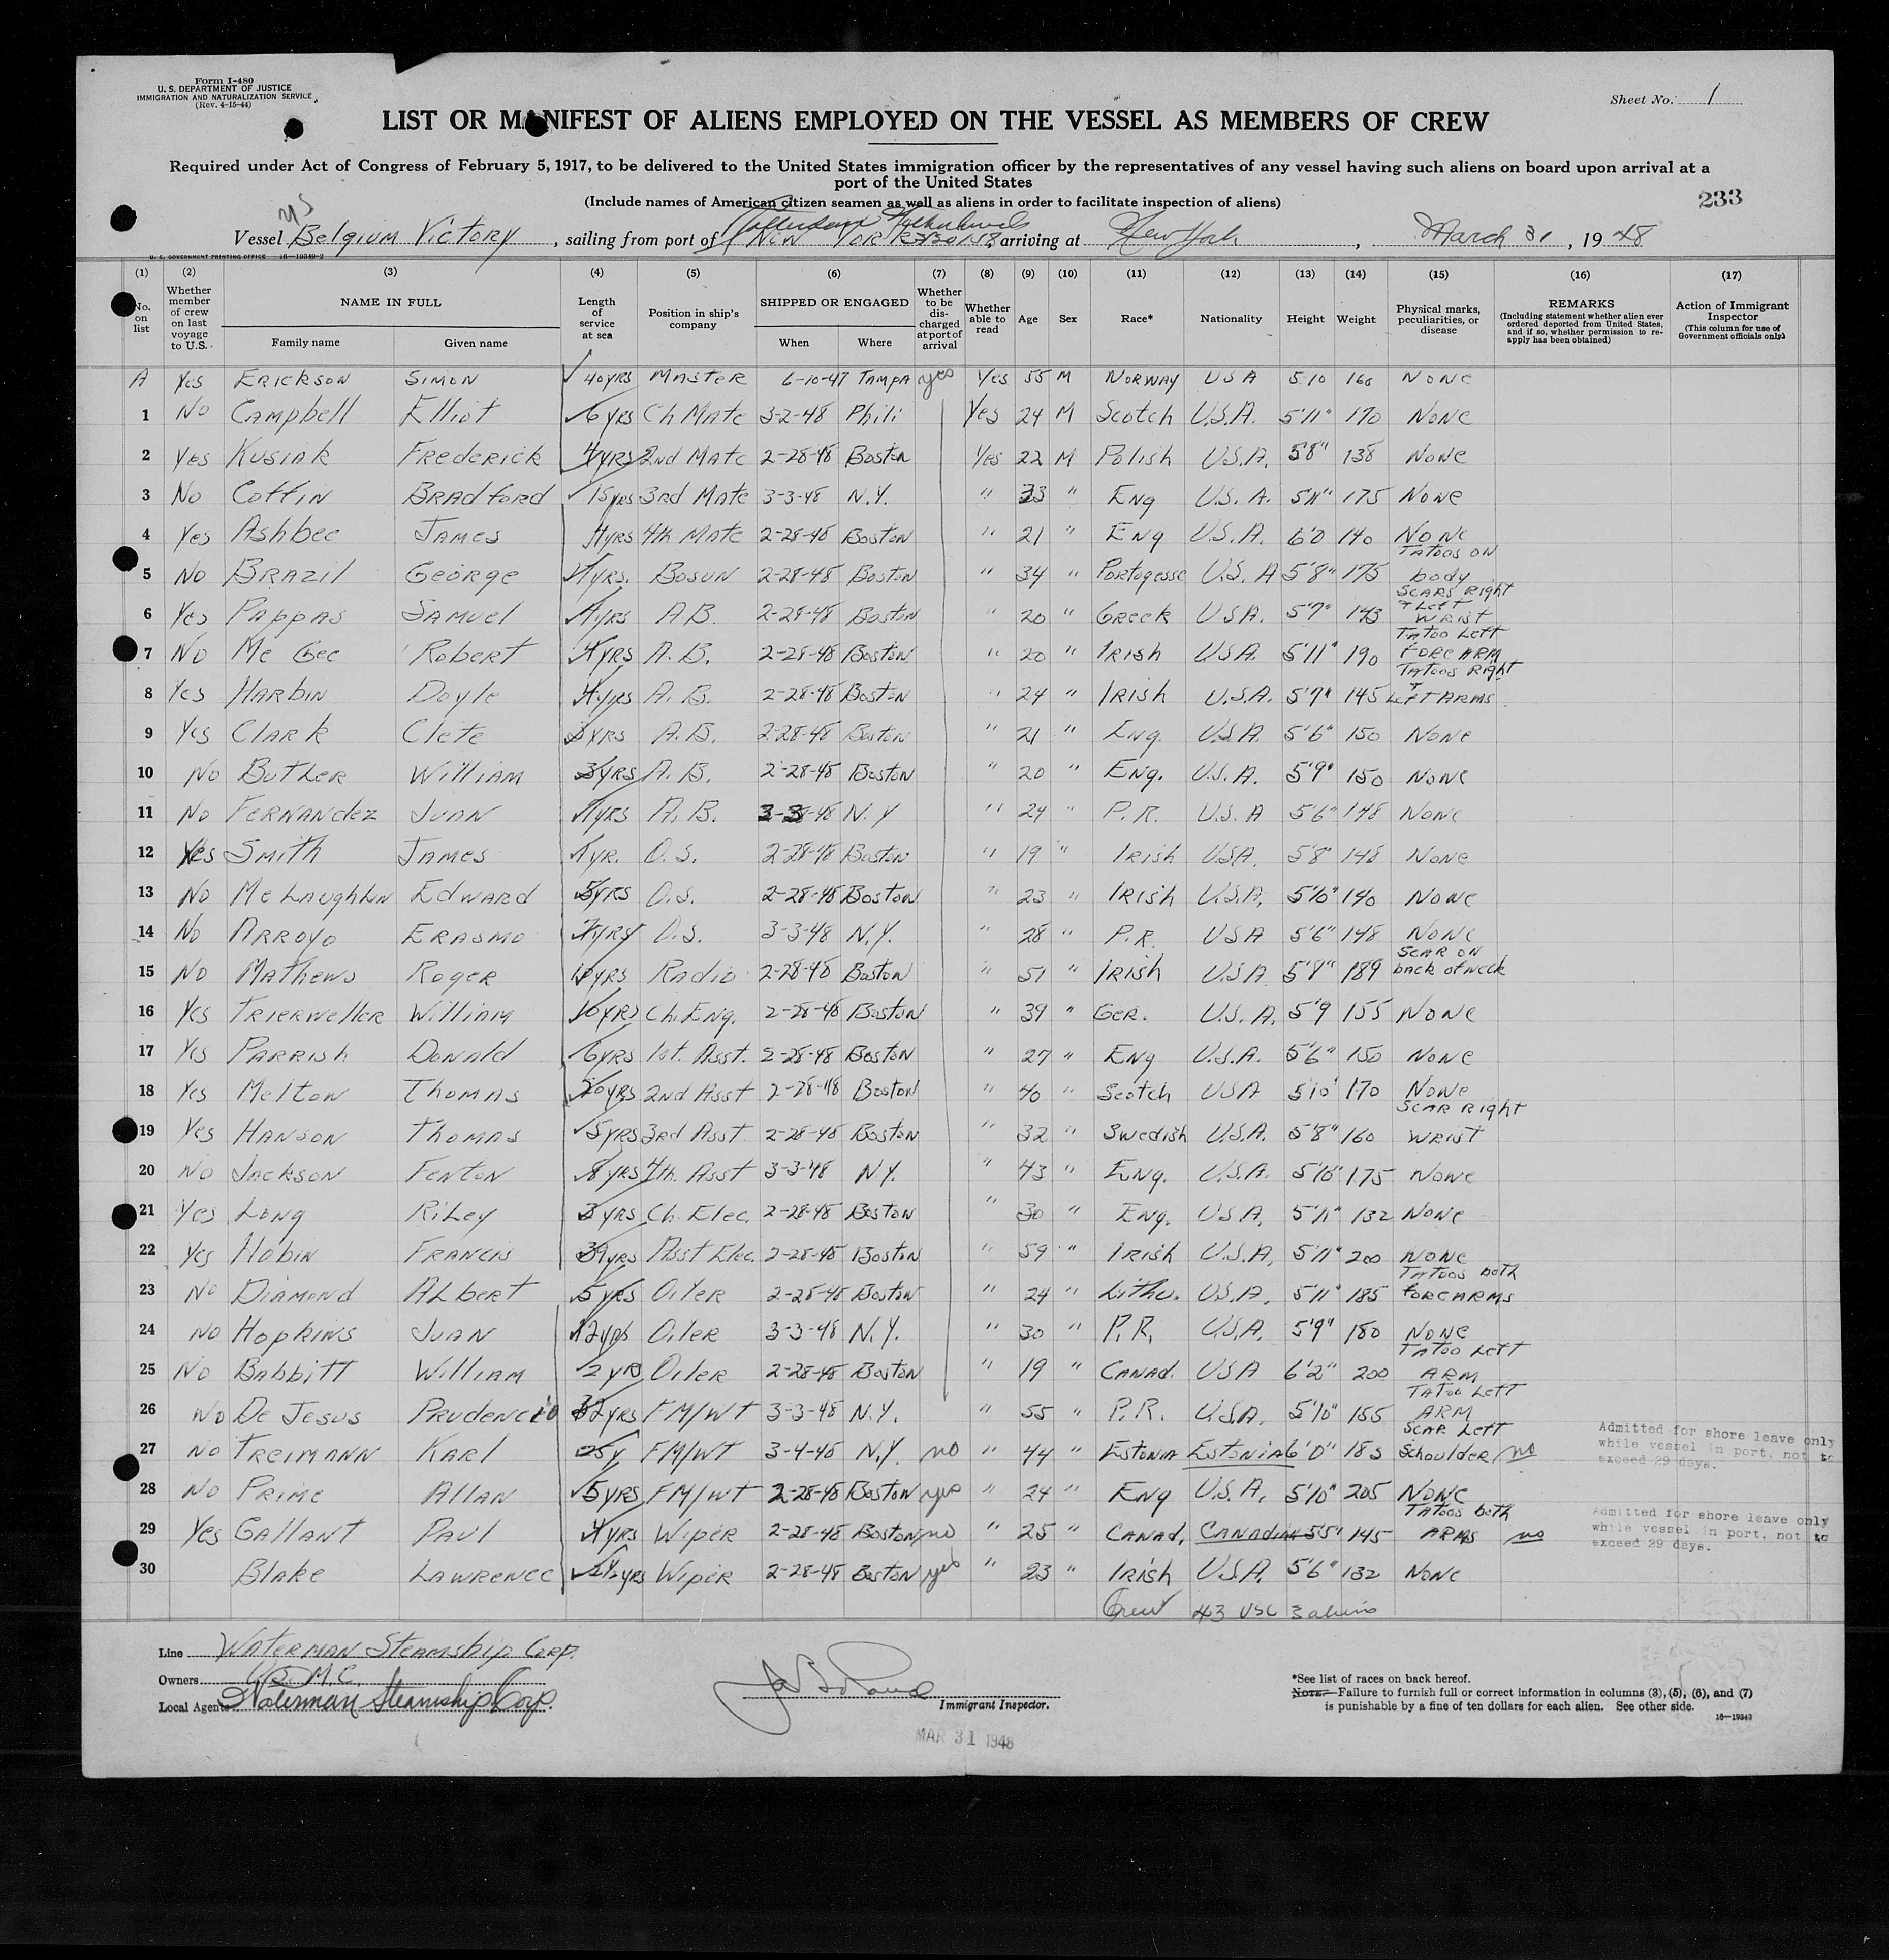 Form I-480
U. S. DEPARTMENT OF JUSTICE
IMMIGRATION AND NATURALIZATION SERVICE
(Rev. 4-15-44)
Sheet No. 1
LIST OR MANIFEST OF ALIENS EMPLOYED ON THE VESSEL AS MEMBERS OF CREW
Required under Act of Congress of February 5, 1917, to be delivered to the United States immigration officer by the representatives of any vessel having such aliens on board upon arrival at a
port of the United States
(Include names of American citizen seamen as well as aliens in order to facilitate inspection of aliens)
233
Vessel Belgium Victory, sailing from port of Rotterdam Netherlands NEW YORK arriving at New York, March 31, 1948
U. S. GOVERNMENT PRINTING OFFICE 16—19349-2
(1) (2) (3) (4) (5) (6) (7) (8) (9) (10) (11) (12) (13) (14) (15) (16) (17)
No. on list
Whether member of crew on last voyage to U.S.
NAME IN FULL
Family name Given name
Length of service at sea
Position in ship's company
SHIPPED OR ENGAGED
When Where
Whether to be discharged at port of arrival
Whether able to read
Age
Sex
Race*
Nationality
Height
Weight
Physical marks, peculiarities, or disease
REMARKS
(Including statement whether alien ever ordered deported from United States, and if so, whether permission to reapply has been obtained)
Action of Immigrant Inspector
(This column for use of Government officials only)
A Yes Erickson Simon 40yrs Master 6-10-47 Tampa yes Yes 55 M Norway USA 5 10 160 None
1 No Campbell Elliot 6yrs Ch Mate 3-2-48 Phili Yes 24 M Scotch U.S.A. 5'11" 170 None
2 Yes Kusiak Frederick 4yrs 2nd Mate 2-28-48 Boston Yes 22 M Polish U.S.A. 5'8" 138 None
3 No Coffin Bradford 15yrs 3rd Mate 3-3-48 N.Y. " 33 " Eng U.S.A. 5'11" 175 None
4 Yes Ashbee James 4yrs 4th Mate 2-28-48 Boston " 21 " Eng U.S.A. 6'0 140 None
5 No Brazil George 4yrs. Bosun 2-28-48 Boston " 34 " Portogesse U.S.A 5'8" 175 Tatoos on body
6 Yes Pappas Samuel 4yrs A.B. 2-28-48 Boston " 20 " Greek U.S.A. 5'7" 143 Scars Right + Left Wrist
7 No McGee Robert 4yrs A.B. 2-28-48 Boston " 20 " Irish U.S.A. 5'11" 190 Tatoo Left Forearm
8 Yes Harbin Doyle 4yrs A.B. 2-28-48 Boston " 24 " Irish U.S.A. 5'7" 145 Tatoos Right + Left Arms
9 Yes Clark Clete 3yrs A.B. 2-28-48 Boston " 21 " Eng. U.S.A. 5'6" 150 None
10 No Butler William 3yrs A.B. 2-28-48 Boston " 20 " Eng. U.S.A. 5'9" 150 None
11 No Fernandez Juan 4yrs A.B. 3-3-48 N.Y " 24 " P.R. U.S.A 5'6" 148 None
12 Yes Smith James 1yr. O.S. 2-28-48 Boston " 19 " Irish USA. 5'8" 148 None
13 No McLaughlin Edward 5yrs O.S. 2-28-48 Boston " 23 " Irish U.S.A. 5'10" 140 None
14 No Arroyo Erasmo O.S. 3-3-48 N.Y. " 28 " P.R. USA 5'6" 148 None
15 No Mathews Roger Radio 2-28-48 Boston " 51 " Irish U.S.A 189 Scar on back of neck
16 Yes Trierweller William 10yrs Ch. Eng. 2-28-48 Boston " 39 " Ger. U.S.A. 5'9 155 None
17 Yes Parrish Donald 6yrs 1st. Asst. 2-28-48 Boston " 27 " Eng U.S.A. 5'6" 150 None
18 Yes Melton Thomas 20yrs 2nd Asst 2-28-48 Boston " 40 " Scotch USA 5'10" 170 None
19 Yes Hanson Thomas 5yrs 3rd Asst 2-28-48 Boston " 32 " Swedish U.S.A. 5'8" 160 Scar Right Wrist
20 No Jackson Fenton 8yrs 4th. Asst 3-3-48 N.Y. " 43 " Eng. U.S.A. 5'10" 175 None
21 Yes Long Riley 3yrs Ch. Elec. 2-28-48 Boston " 30 " Eng. U.S.A. 5'11" 132 None
22 Yes Hobin Francis 39yrs Asst Elec. 2-28-48 Boston " 59 " Irish U.S.A. 5'11" 200 None
23 No Diamond Albert 5yrs Oiler 2-28-48 Boston " 24 " Lithu. U.S.A. 5'11" 185 Tatoos both forearms
24 No Hopkins Juan 12yrs Oiler 3-3-48 N.Y. " 30 " P.R. U.S.A. 5'9" 180 None
25 No Babbitt William 2yrs Oiler 2-28-48 Boston " 19 " Canad. USA 6'2" 200 Tatoo Left Arm
26 No De Jesus Prudencio 32yrs FM/WT 3-3-48 N.Y. " 55 " P.R. U.S.A. 5'10" 155 Tatoo Left Arm
27 No Treimann Karl 25y FM/WT 3-4-48 N.Y. no " 44 " Estonia Estonia 6'0" 183 Scar Left Schoulder no Admitted for shore leave only while vessel in port, not to exceed 29 days.
28 No Prime Allan 5yrs FM/WT 2-28-48 Boston yes " 24 " Eng U.S.A. 5'10" 205 None
29 Yes Gallant Paul 4yrs Wiper 2-28-48 Boston no " 25 " Canad. Canadian 5'5" 145 Tatoos both arms no Admitted for shore leave only while vessel in port, not to exceed 29 days.
30 Blake Lawrence Wiper 2-28-48 Boston yes " 23 " Irish U.S.A. 5'6" 132 None
Crew 43 USC 3 aliens
Line Waterman Steamship Corp.
Owners U.S. M.C.
Local Agents Waterman Steamship Corp.
Immigrant Inspector.
MAR 31 1948
*See list of races on back hereof.
NOTE.—Failure to furnish full or correct information in columns (3), (5), (6), and (7)
is punishable by a fine of ten dollars for each alien. See other side.
16—19349